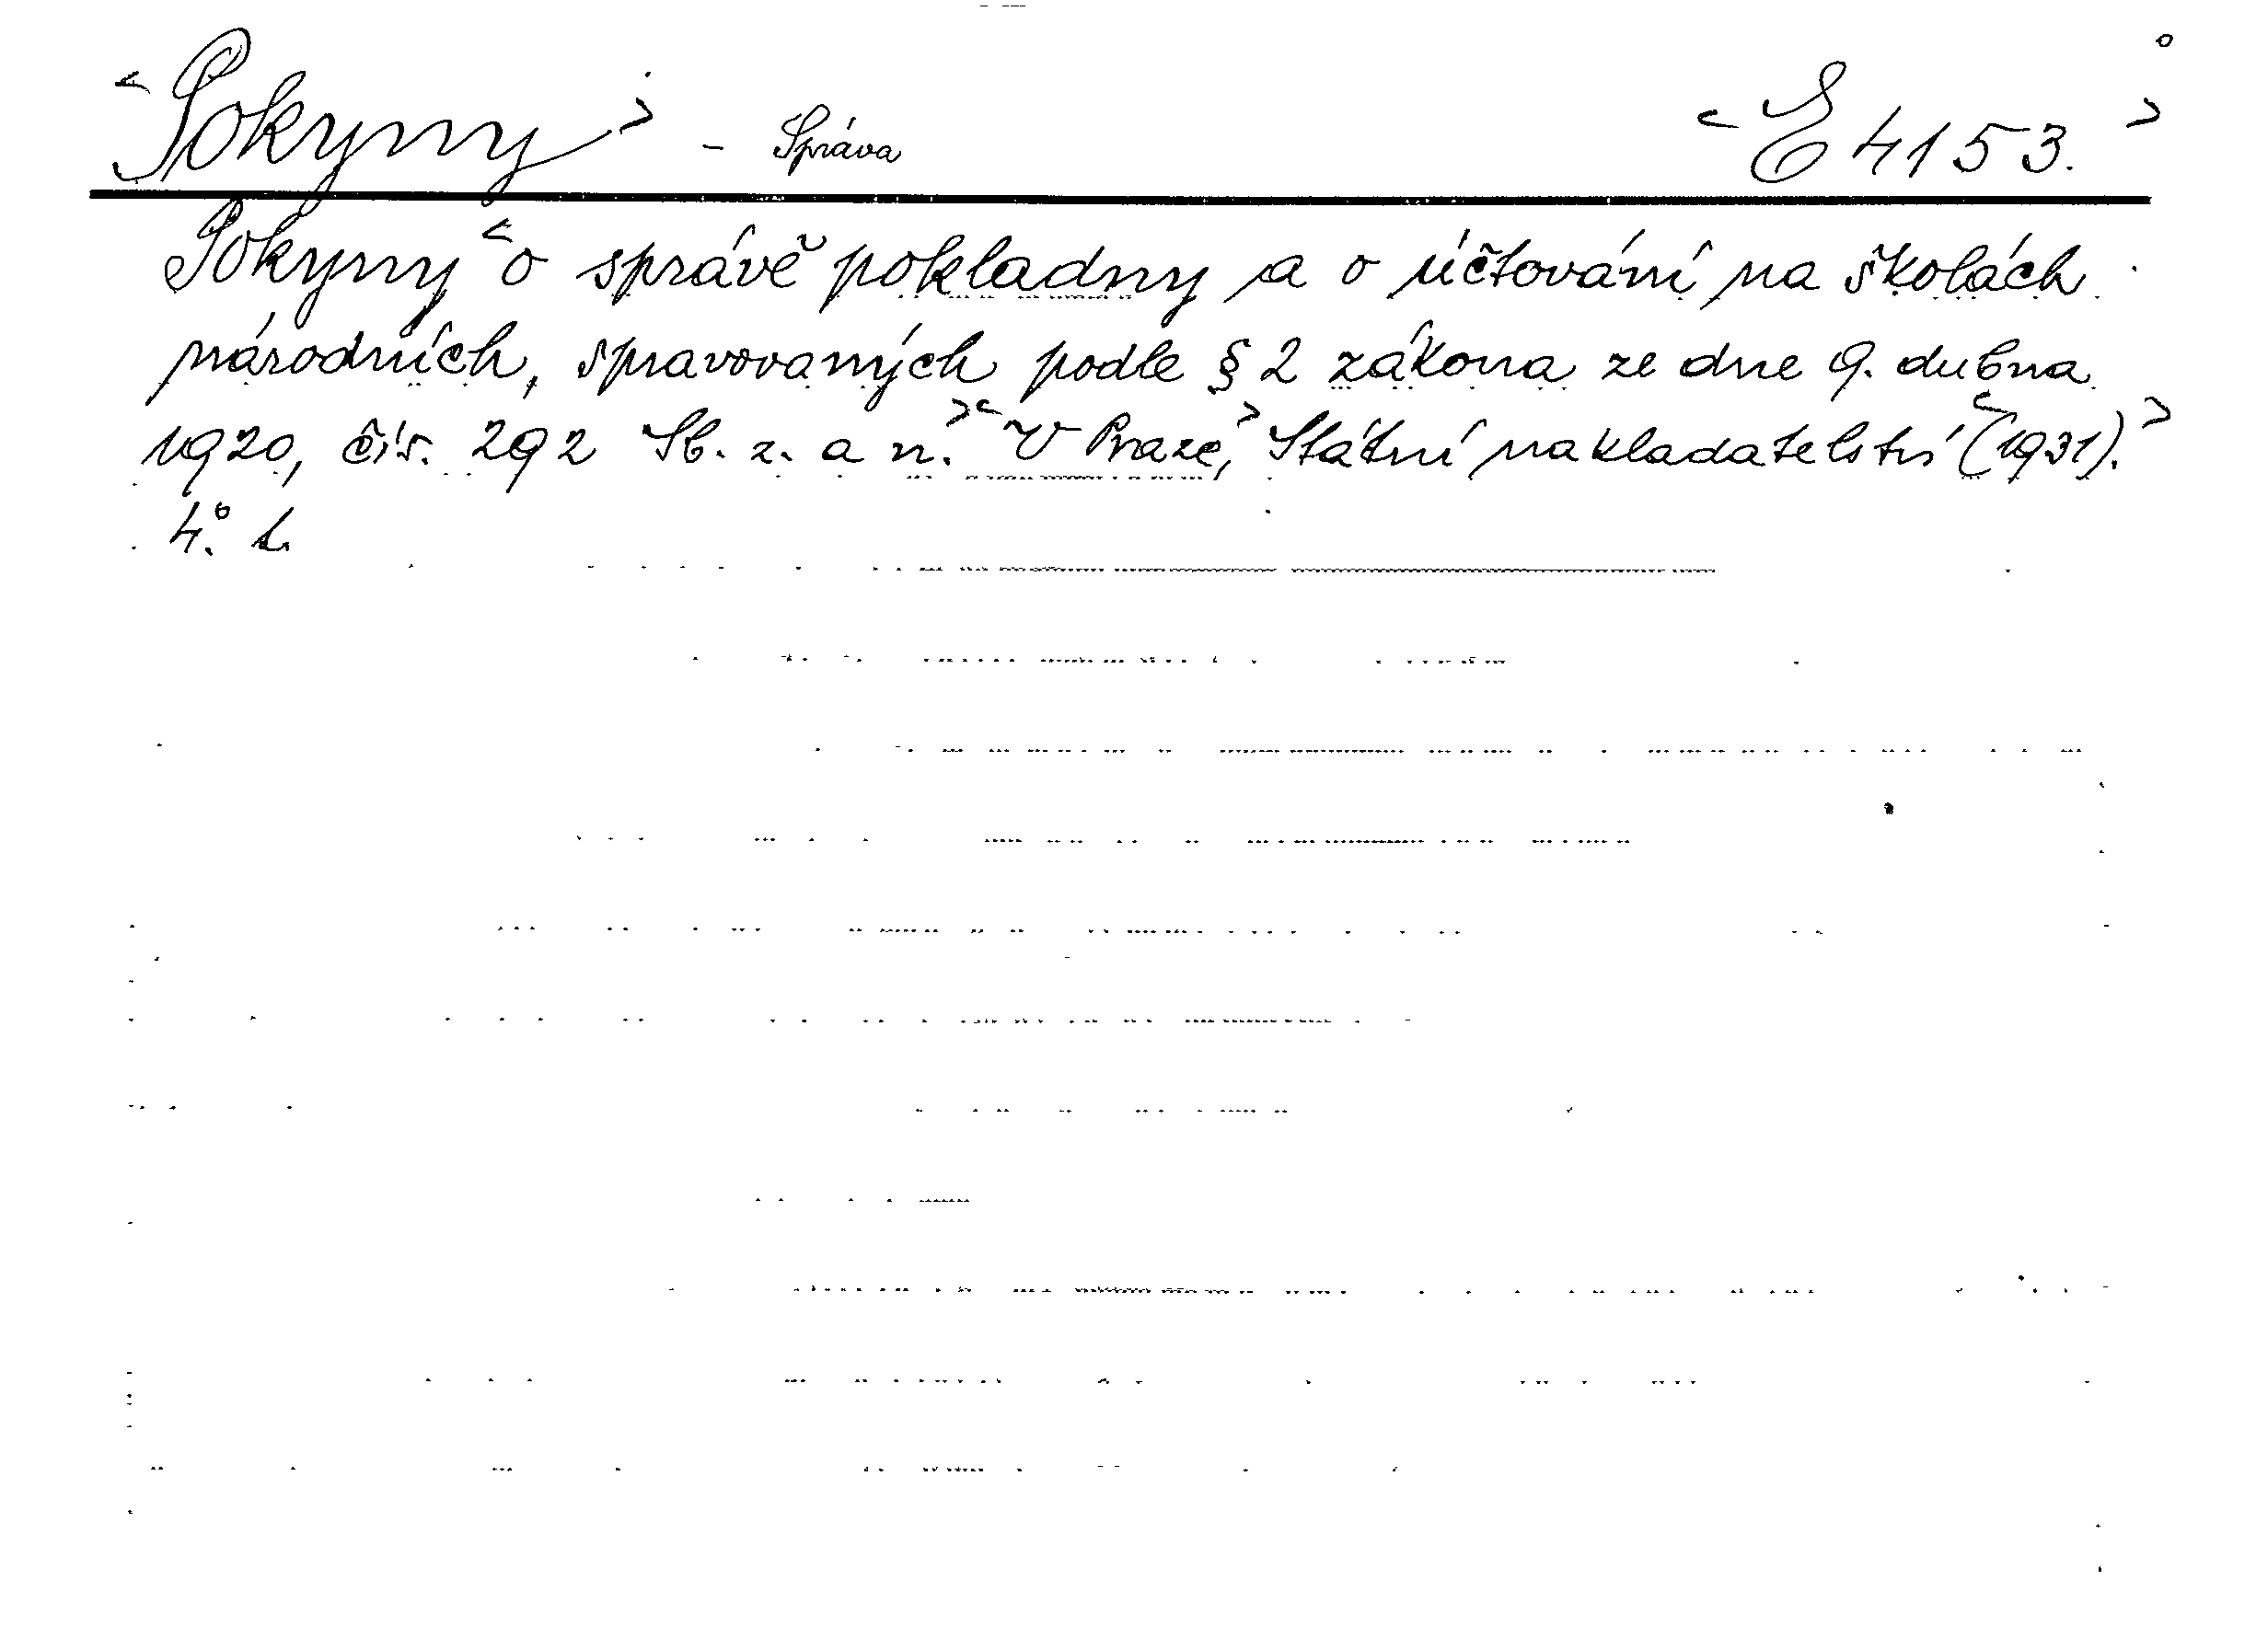 <Pokyny> - Správa <E 4153.>
Pokyny <o správě pokladny a o účtování na školách
národních, spravovaných podle § 2 zákona ze dne 9. dubna
1920, čís. 292 Sb. z. a n.> <V Praze,> Státní nakladatelství <(1931).>
4°.